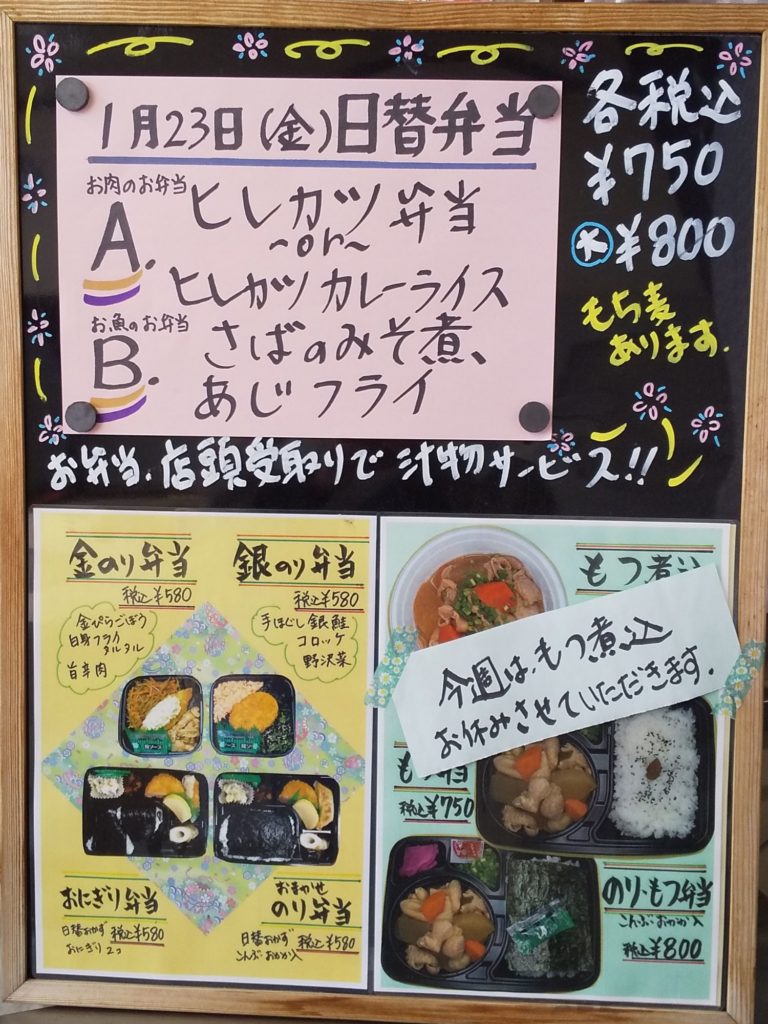 1月23日(金)日替弁当
お肉のお弁当
A. ヒレカツ弁当
~or~
ヒレカツカレーライス
お魚のお弁当
B. さばのみそ煮、
あじフライ
各税込
¥750
大 ¥800
もち麦
あります.
お弁当、店頭受取りで 汁物サービス!!
金のり弁当
税込¥580
金ぴらごぼう
白身フライ
タルタル
旨辛肉
銀のり弁当
税込¥580
手ほぐし銀鮭
コロッケ
野沢菜
おにぎり弁当
日替おかず
おにぎり 2コ
税込¥580
おまかせ
のり弁当
日替おかず
こんぶ・おかか入
税込¥580
もつ煮込
今週は、もつ煮込
お休みさせていただきます.
税込¥750
のり・もつ弁当
こんぶ・おかか入
税込¥800